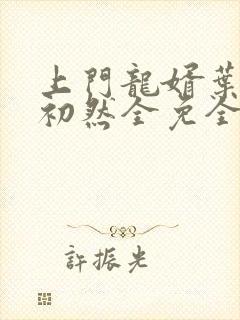 上門龍婿葉
初然全免全
許振光